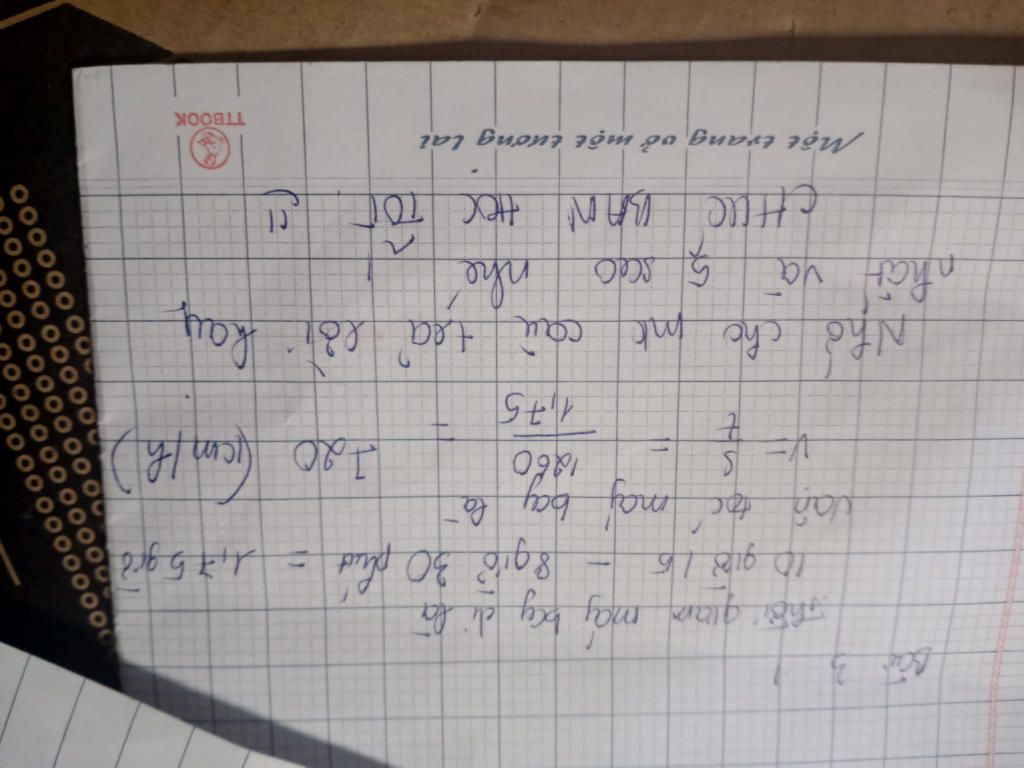 Bài 3
Thời gian máy bay đi là
10 giờ 15 - 8 giờ 30 phút = 1,75 giờ
Vận tốc máy bay là
v = s/t = 1260/1,75 = 720 (km/h)
Nhớ cho mk câu trả lời hay
nhất và 5 sao nhé !
CHÚC BẠN HỌC TỐT
Một trang vở một tương lai
TTBOOK